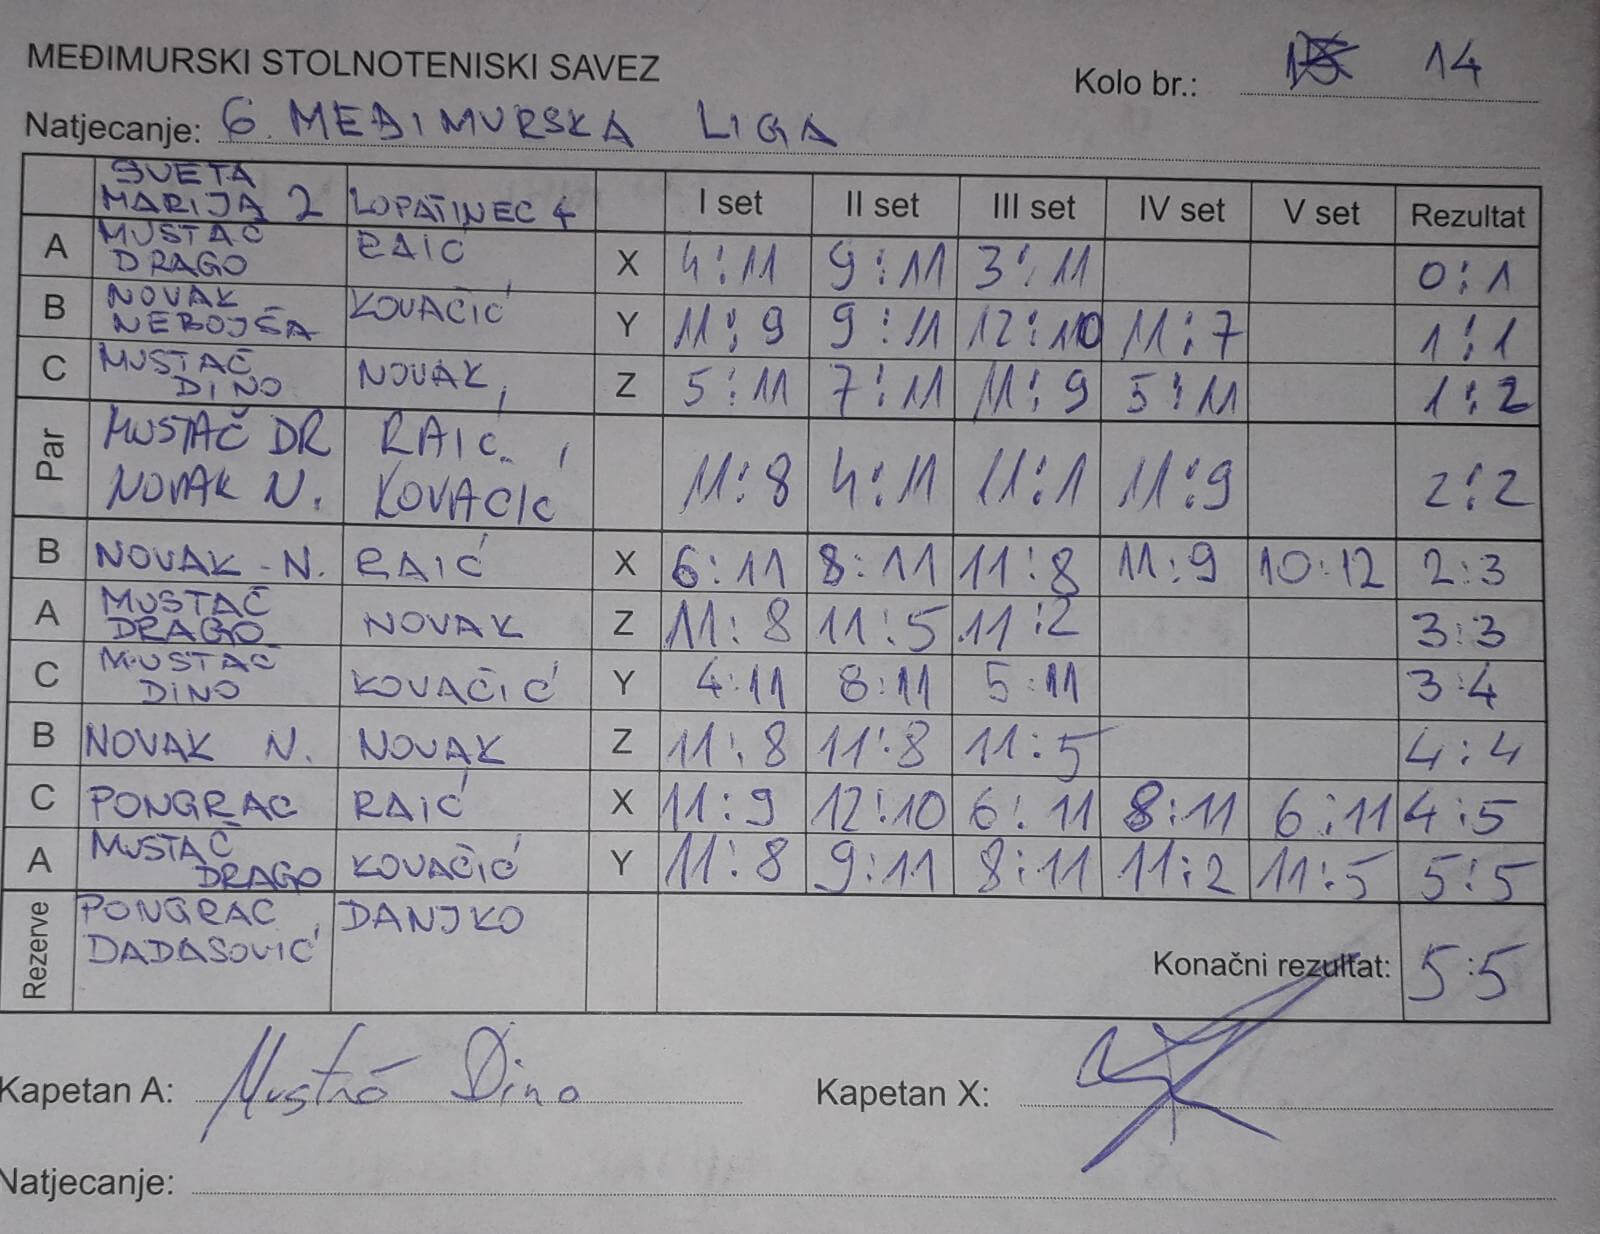 MEĐIMURSKI STOLNOTENISKI SAVEZ
Kolo br.: 14
Natjecanje: 6. MEĐIMURSKA LIGA
SVETA MARIJA 2 LOPATINEC 4 I set II set III set IV set V set Rezultat
A MUSTAČ DRAGO RAIĆ X 4:11 9:11 3:11 0:1
B NOVAK NEBOJŠA KOVAČIĆ Y 11:9 9:11 12:10 11:7 1:1
C MUSTAČ DINO NOVAK Z 5:11 7:11 11:9 5:11 1:2
Par MUSTAČ DR NOVAK N. RAIĆ KOVACIĆ 11:8 4:11 11:1 11:9 2:2
B NOVAK - N. RAIĆ X 6:11 8:11 11:8 11:9 10:12 2:3
A MUSTAČ DRAGO NOVAK Z 11:8 11:5 11:2 3:3
C MUSTAČ DINO KOVAČIĆ Y 4:11 8:11 5:11 3:4
B NOVAK N. NOVAK Z 11:8 11:8 11:5 4:4
C PONGRAC RAIĆ X 11:9 12:10 6:11 8:11 6:11 4:5
A MUSTAČ DRAGO KOVAČIĆ Y 11:8 9:11 8:11 11:2 11:5 5:5
Rezerve PONGRAC DADASOVIĆ DANJKO Konačni rezultat: 5:5
Kapetan A: Mustač Dino Kapetan X:
Natjecanje: